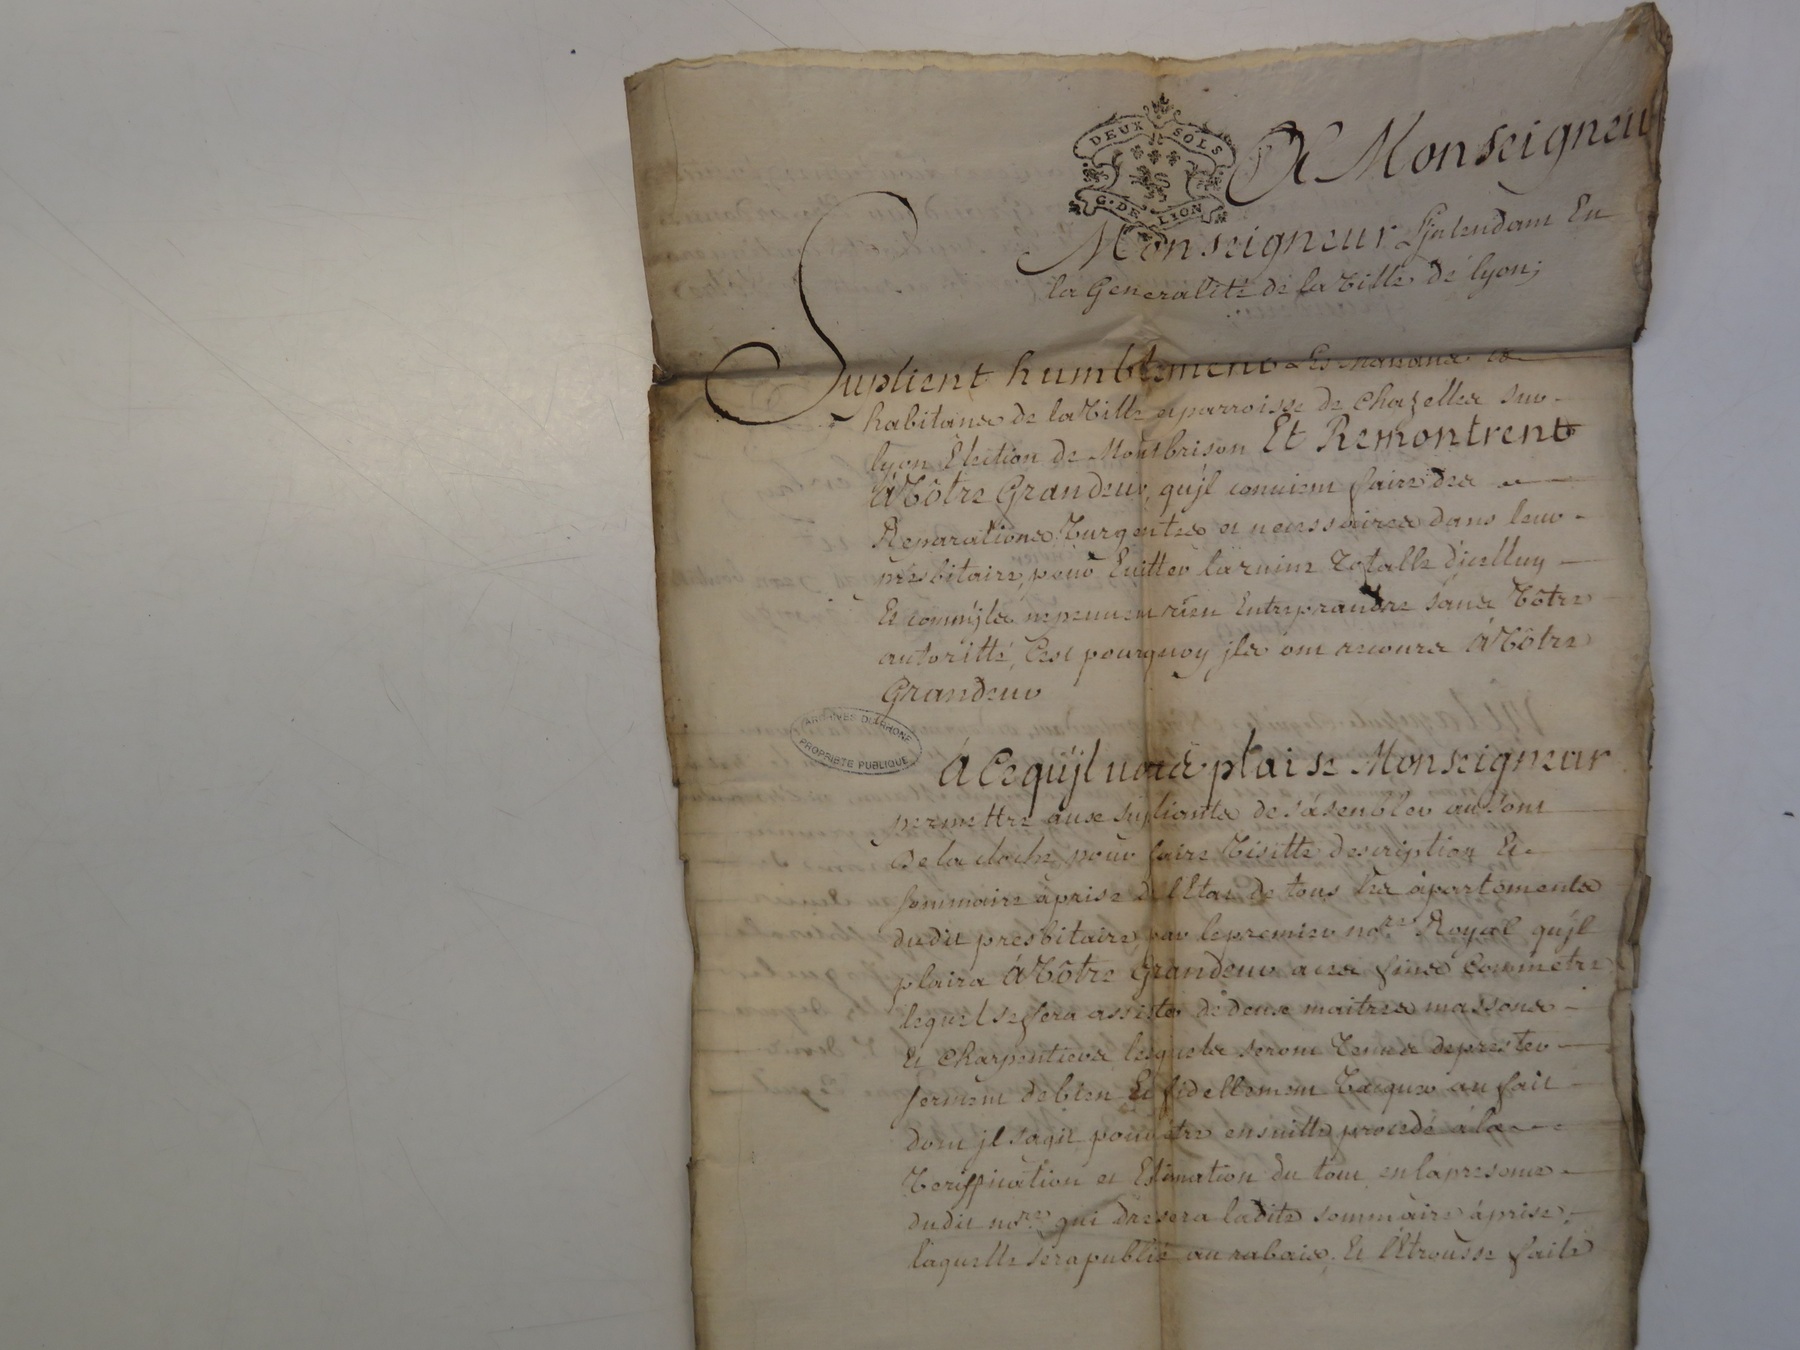 DEUX SOLS
G. DE LION
A Monseigneu
Monseigneur Jntendant En
la Generalité de la Ville de lyon;
Suplient humblement Les manans et
habitans de la Ville et parroisse de Chazelles sur
lyon Élection de Montbrison Et Remontrent
à Vôtre Grandeur, qu'jl convient faire des
Reparations Vurgentes et necessaires dans leur
presbitaire, pour Evitter la ruine Totalle d'icelluy
Et comm'jls ne peuvent rien Entreprandre sans Vôtre
autoritté, C'est pourquoy jls ont recours à Vôtre
Grandeur
ARCHIVES DU RHONE
PROPRIETE PUBLIQUE
À Ce qu'jl vous plaise Monseigneur
permettre aux supliants de s'asembler au son
de la cloche pour faire Visitte description Et
sommaire àprise de l'Etat de tous les àpartements
dudit presbitaire par le premier no.re Royal qu'jl
plaira à Vôtre Grandeur a ces fins Commetre
lequel se fera assister de deux maitres massons
Et Charpentiers lesquels seront Tenus de prester
serment de bien Et fidellement Vacquer au fait
dont jl s'agit pour être ensuitte procedé à la
Veriffication et Estimation du tout en la presence
dudit no.re qui dresera ladite sommaire àprise;
laquelle sera publié au rabais, Et l'Etrousse faite